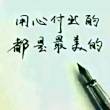 用心付出的
都是最美的